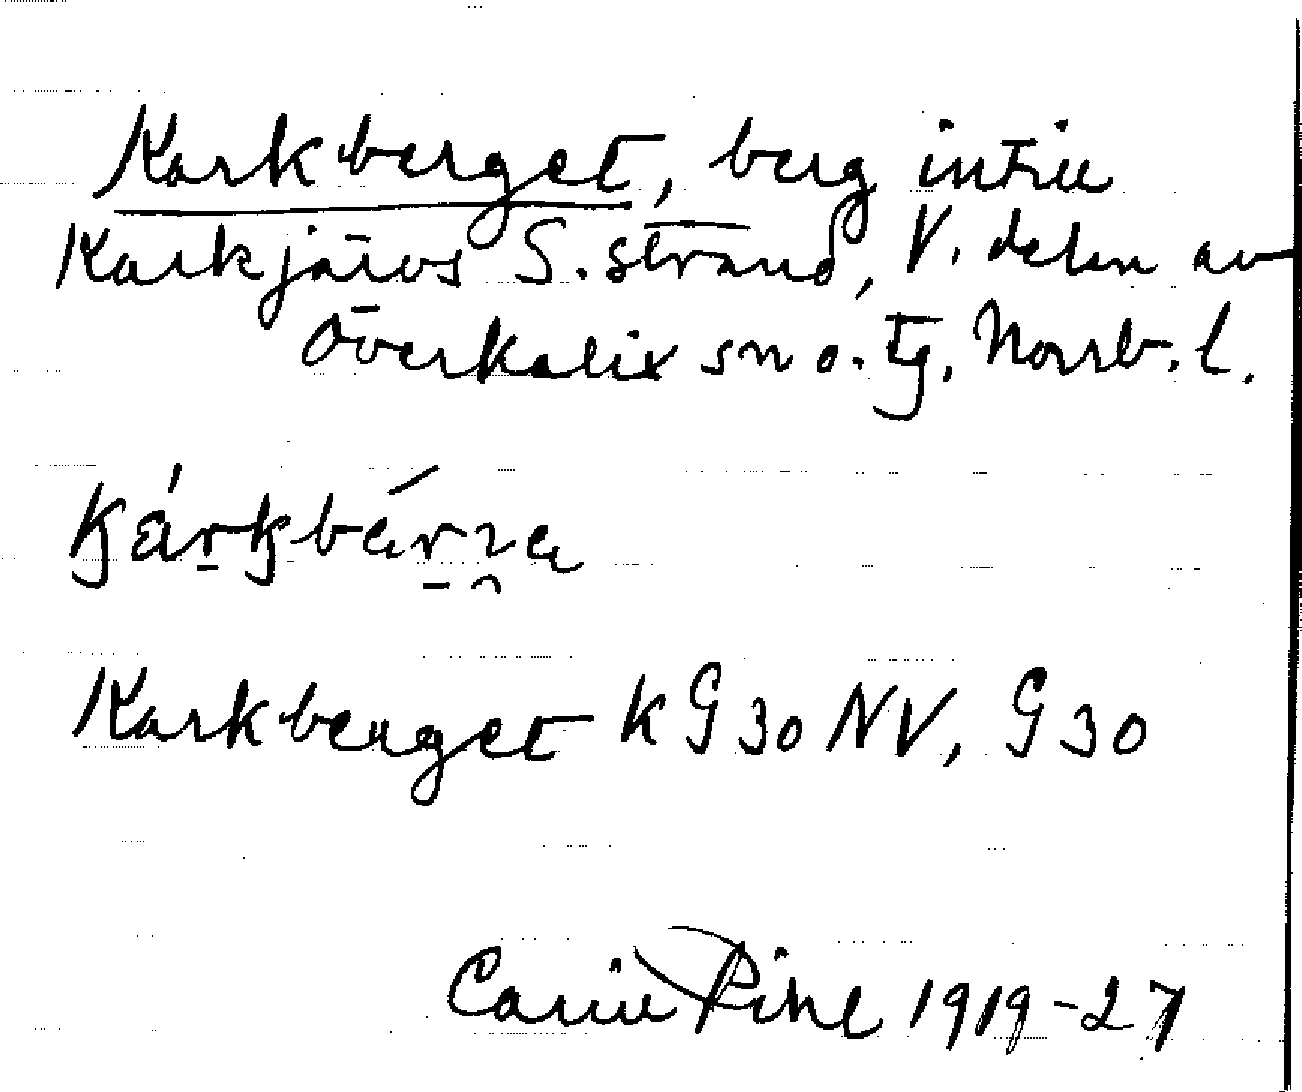 Karkberget, berg intill
Karkjärvs S. strand, V. delen av
Överkalix sn o. tg, Norrb. l.
Karkberget K G 30 NV, G 30
Carin Pihl 1919-27